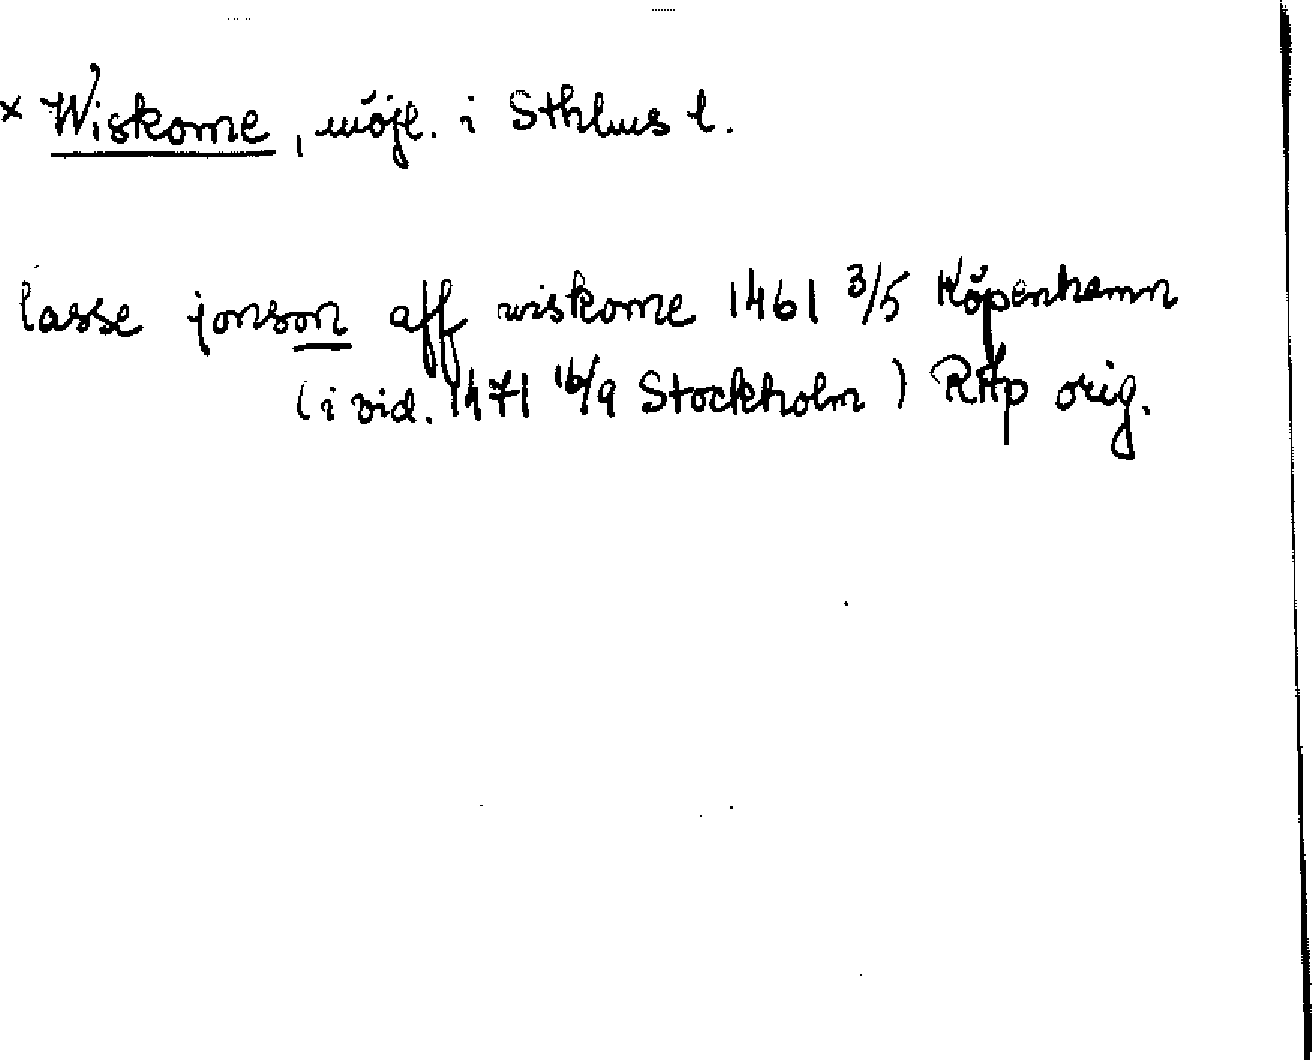 x Wiskome, möjl. i Sthlms l.
lasse jonson aff wiskome 1461 3/5 Köpenhamn
(i vid. 1471 16/9 Stockholm) RAp orig.